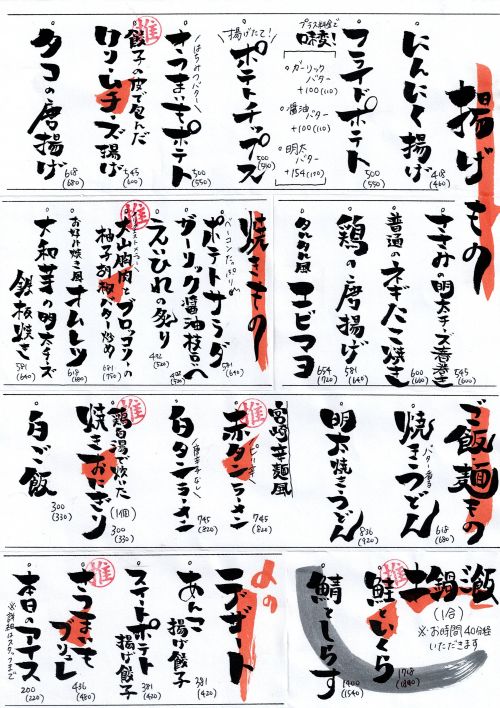 揚げもの
にんにく揚げ
418
(460)
フライドポテト
500
(550)
プラス料金で
味変!
○ガーリックバター
+100(110)
○醤油バター
+100(110)
○明太バター
+154(170)
揚げたて!
ポテトチップス
500
(550)
さつまいもポテト
はちみつバター
500
(550)
推
餃子の皮で包んだ
けりしチーズ揚げ
545
(600)
タコの唐揚げ
618
(680)
ささみの明太チーズ春巻き
545
(600)
普通のネギたこ焼き
600
(660)
鶏の唐揚げ
581
(640)
タルタル風
エビマヨ
654
(720)
焼きもの
ベーコンたっぷりの
ポテトサラダ
581
(640)
ガーリック醤油枝豆
492
(520)
えいひれの炙り
492
(520)
推
大山鶏肉とブロッコリーの
柚子胡椒バター炒め
681
(750)
お好み焼き風
オムレツ
618
(680)
大和芋の明太チーズ
鉄板焼き
581
(640)
ご飯麺もの
焼きうどん
バター醤油
618
(680)
明太焼きうどん
836
(920)
宮崎辛麺風
推
赤タンラーメン
ピリ辛
745
(820)
白タンラーメン
唐辛子なし
745
(820)
推
鶏白湯で炊いた
焼きおにぎり
(1個)
300
(330)
白ご飯
300
(330)
土鍋ご飯
(1合)
※お時間40分程
いただきます
推
鮭といくら
1718
(1890)
鯖としらす
1400
(1540)
〆のデザート
あんこ
揚げ餃子
381
(420)
スイートポテト
揚げ餃子
381
(420)
推
さつまいも
ブリュレ
436
(480)
本日のアイス
200
(220)
※詳細はスタッフまで